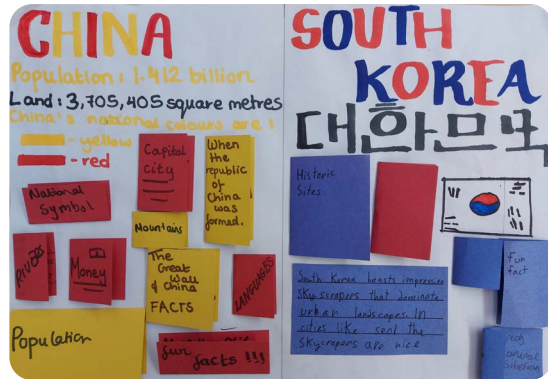 CHINA
Population: 1.412 billion
Land: 3,705,405 square metres
China's national colours are:
- yellow
- red
National
Symbol
Capital
city
When
the
republic
of
China
was
formed.
Mountains
RIVERS
Money
The
Great
Wall
of China
FACTS
LANGUAGES
Population
fun
facts !!!
SOUTH
KOREA
대한민국
Historic
Sites
South Korea boasts impressive
sky scrapers that dominate
urban landscapes. In
cities like seol the
skycrapers are nice
Fun
fact